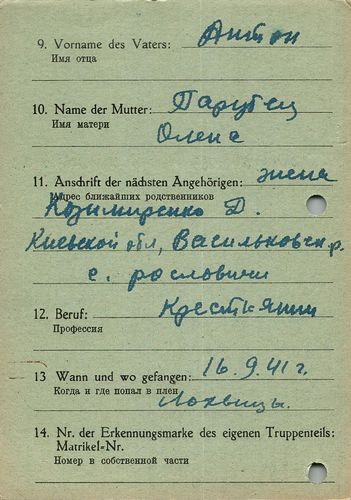 9. Vorname des Vaters: Антон
Имя отца
10. Name der Mutter: Парубец
Имя матери
Олена
11. Anschrift der nächsten Angehörigen: жена
Адрес ближайших родственников
Казимиренко Д.
Киевской обл, Васильковск. р.
с. рославичи
12. Beruf: Крестьянин
Профессия
13 Wann und wo gefangen: 16.9.41 г.
Когда и где попал в плен
Лохвицы.
14. Nr. der Erkennungsmarke des eigenen Truppenteils:
Matrikel=Nr.
Номер в собственной части